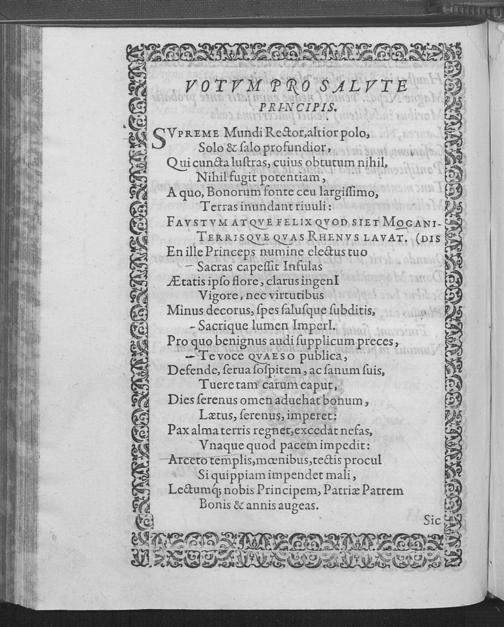 VOTVM PRO SALVTE
PRINCIPIS.
SVPREME Mundi Rector, altior polo,
Solo & salo profundior,
Qui cuncta lustras, cuius obtutum nihil,
Nihil fugit potentiam,
A quo, Bonorum fonte ceu largissimo,
Terras inundant riuuli:
FAVSTVM ATQVE FELIX QVOD SIET MOGANI-
TERRISQVE QVAS RHENVS LAVAT. (DIS
En ille Princeps numine electus tuo
Sacras capessit Insulas
Ætatis ipso flore, clarus ingenI
Vigore, nec virtutibus
Minus decorus, spes salusque subditis,
Sacrique lumen ImperI.
Pro quo benignus audi supplicum preces,
Te voce QVAESO publica,
Defende, serua sospitem, ac sanum suis,
Tuere tam carum caput,
Dies serenus omen aduehat bonum,
Lætus, serenus, imperet:
Pax alma terris regnet, excedat nefas,
Vnaque quod pacem impedit:
Arceto templis, mœnibus, tectis procul
Si quippiam impendet mali,
Lectumq; nobis Principem, Patriæ Patrem
Bonis & annis augeas.
Sic